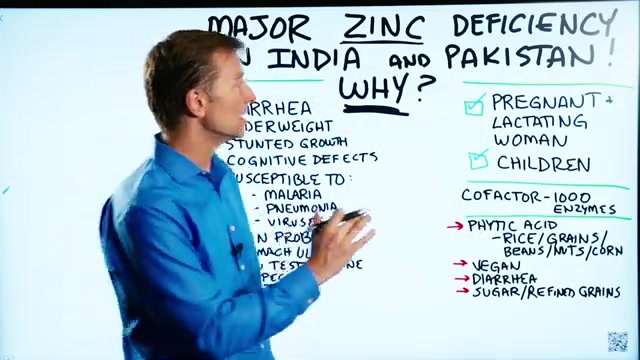 MAJOR ZINC DEFICIENCY
IN INDIA AND PAKISTAN!
WHY?
DIARRHEA
UNDERWEIGHT
STUNTED GROWTH
COGNITIVE DEFECTS
SUSCEPTIBLE TO:
- MALARIA
- PNEUMONIA
- VIRUSES
PREGNANT +
LACTATING
WOMAN
CHILDREN
COFACTOR - 1000
ENZYMES
→ PHYTIC ACID
- RICE/GRAINS/
BEANS/NUTS/CORN
→ VEGAN
→ DIARRHEA
→ SUGAR/REFINED GRAINS